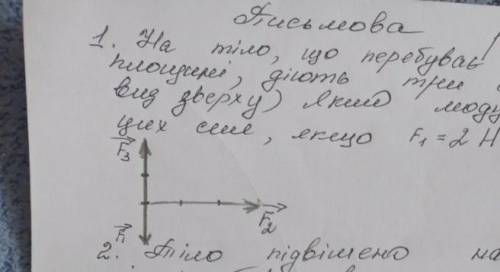 Письмова
1. На тіло, що перебуває
площині, діють три
вид зверху) Якщо моду
цих сил, якщо F₁ = 2 Н
F₃
F₂
F₁
2. Тіло підвішено на